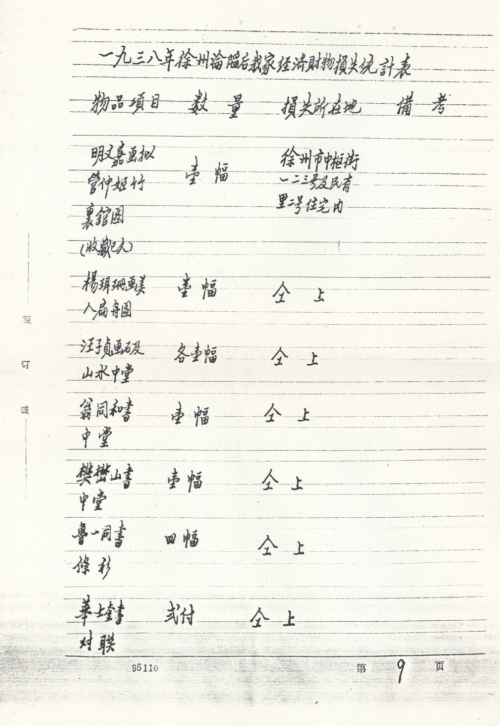 一九三八年徐州淪陷后我家经济財物損失统計表
物品項目 数量 損失所在地 備考
明文嘉画拟 壹幅 徐州市中枢街
管仲姬竹 一二三号及民育
裏館图 里二号住宅内
(收藏已久)
楊珥珊画美 壹幅 仝上
人扁舟图
汪子貞画石及 各壹幅 仝上
山水中堂
翁同和書 壹幅 仝上
中堂
樊樊山書 壹幅 仝上
中堂
魯一同書 四幅 仝上
條衫
華士奎書 弍付 仝上
对联
装
订
线
95110 第9页